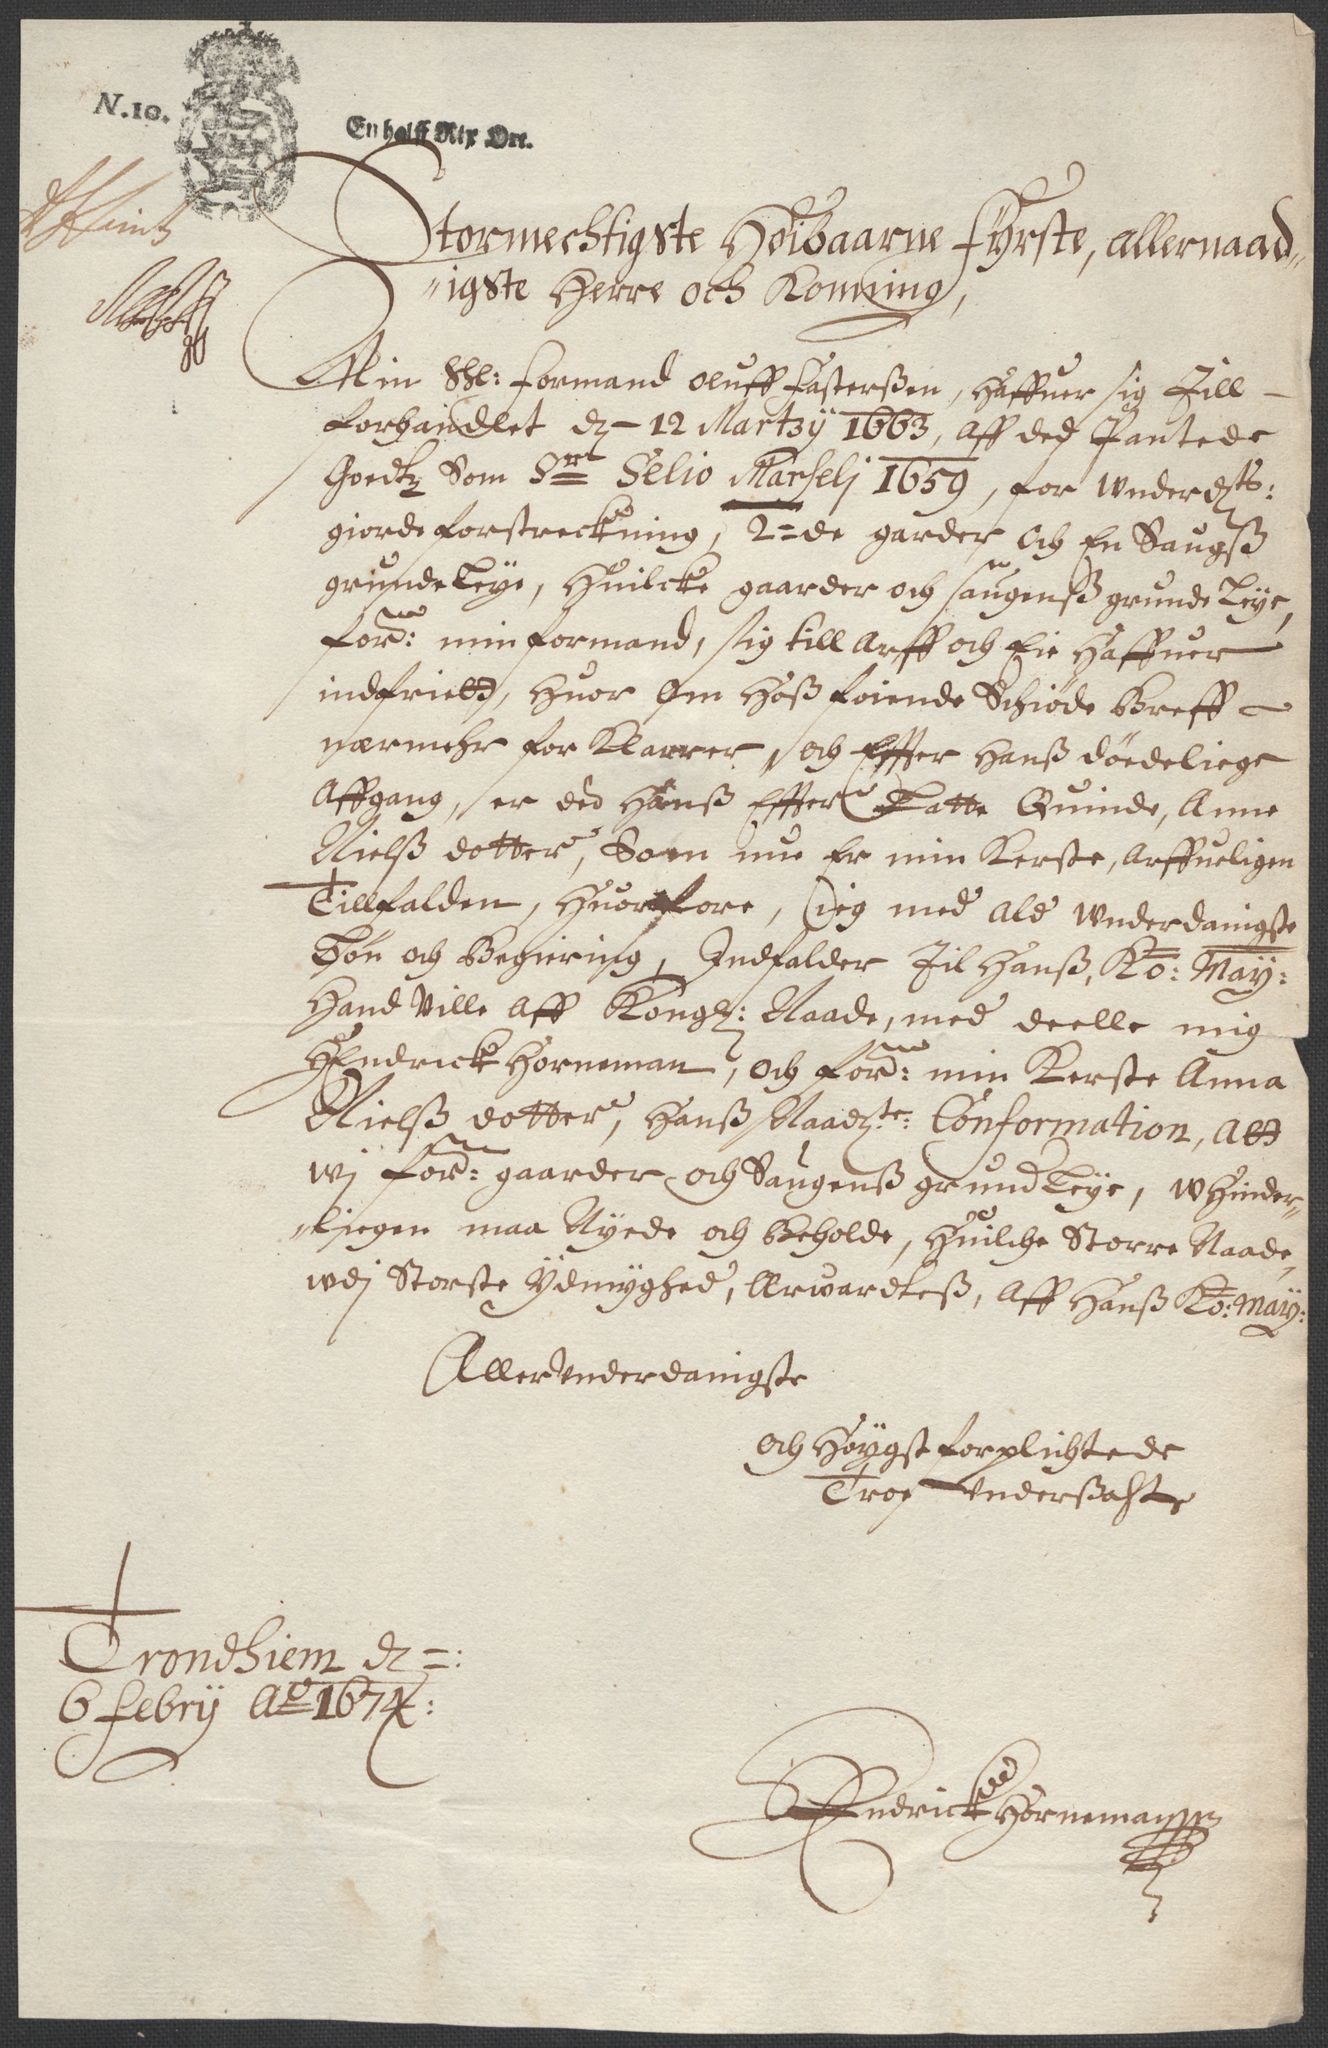 N.10.
En halff Rix Ort.
Stormechtigste Høibaarne Fÿrste, allernaad„
„igste Herre och Konning,
Min Shl: formand Oluff Fasterßen, haffuer sig Till
forhandlet dz 12 Martzij 1663, aff ded Pantede
Goedtz Som Sr Selio Marselj 1659, for wnderdts:
giorde forstreckning, 2=de garder och En Saugß
grunde Leye, Huilcke gaarder och saugenß grunde Leye,
for: min formand, sig till Arff och Eie haffuer
indfriett, huor om hoß føiende Schiøde Breff
nærmehr for Klarrer, och Effter hanß døedeliege
Affgang, er ded hanß Effter Latte Quinde, Anne
Nielß dotter, Som nue Er min Kerste, Arffueligen
Tillfalden, huorfore, ieg med ald wnderdanigste
Bøn och Begiering, Indfalder Til Hanß, Ko: May:
hand Ville aff Kongl: Naade, med deelle mig
Hendrick Horneman, och for: min Kerste Anna
Nielß dotter, hanß Naadgte: Conformation, Att
wj for: gaarder och Saugenß grund Leye, whinder„
„liegen maa Nyede och Beholde, Huilche Storre Naade,
wdj Storste Ydmyghed, Erwardteß, aff Hanß Ko: May:
Allerunderdanigste
och Høygst forplichtede
Troe Underßaatt
Trondhiem dz =:
6 Febrij Ao 1674:
Hendrick Horneman